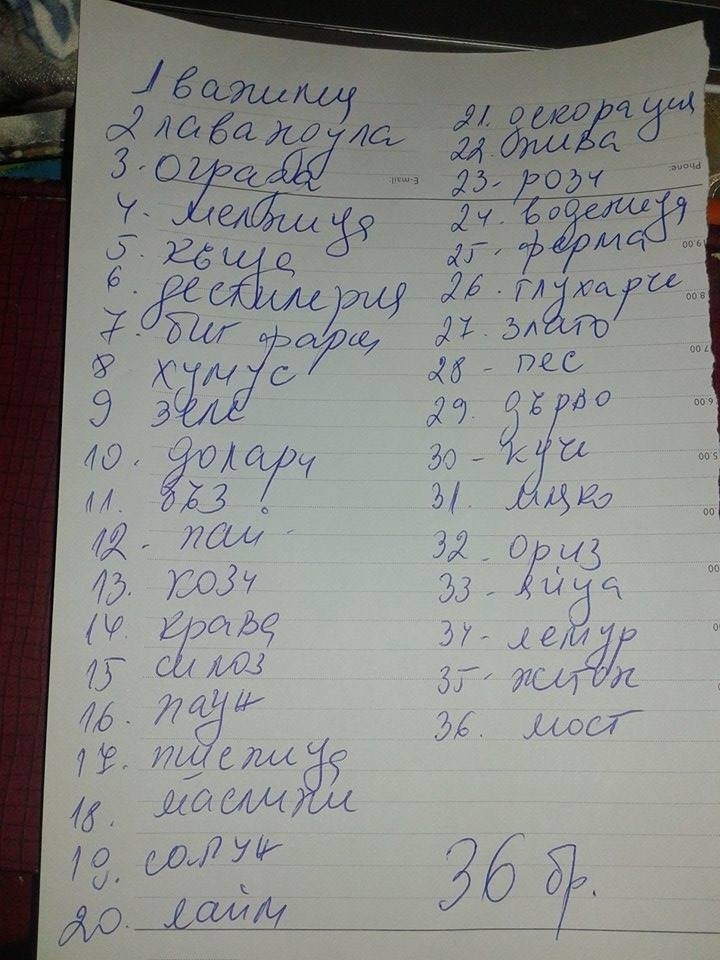 1 ванилия
2 лавандула
3. ограда
4. мелница
5. къща
6. дестилерия
7. биг фарм
8 хумус
9 зеле
10. долари
11. бъз
12. пай
13. кози
14. крава
15 силоз
16. паун
17. пшеница
18. маслини
19. сомун
20. лайм
21. декорация
22.
23- рози
24. воденица
25- ферма
26. глухарче
27. злато
28- пес
29. дърво
30- куче
31. мляко
32. ориз
33- яйца
34- лемур
35- жетон
36. мост
36 бр.
E-mail:
Phone: